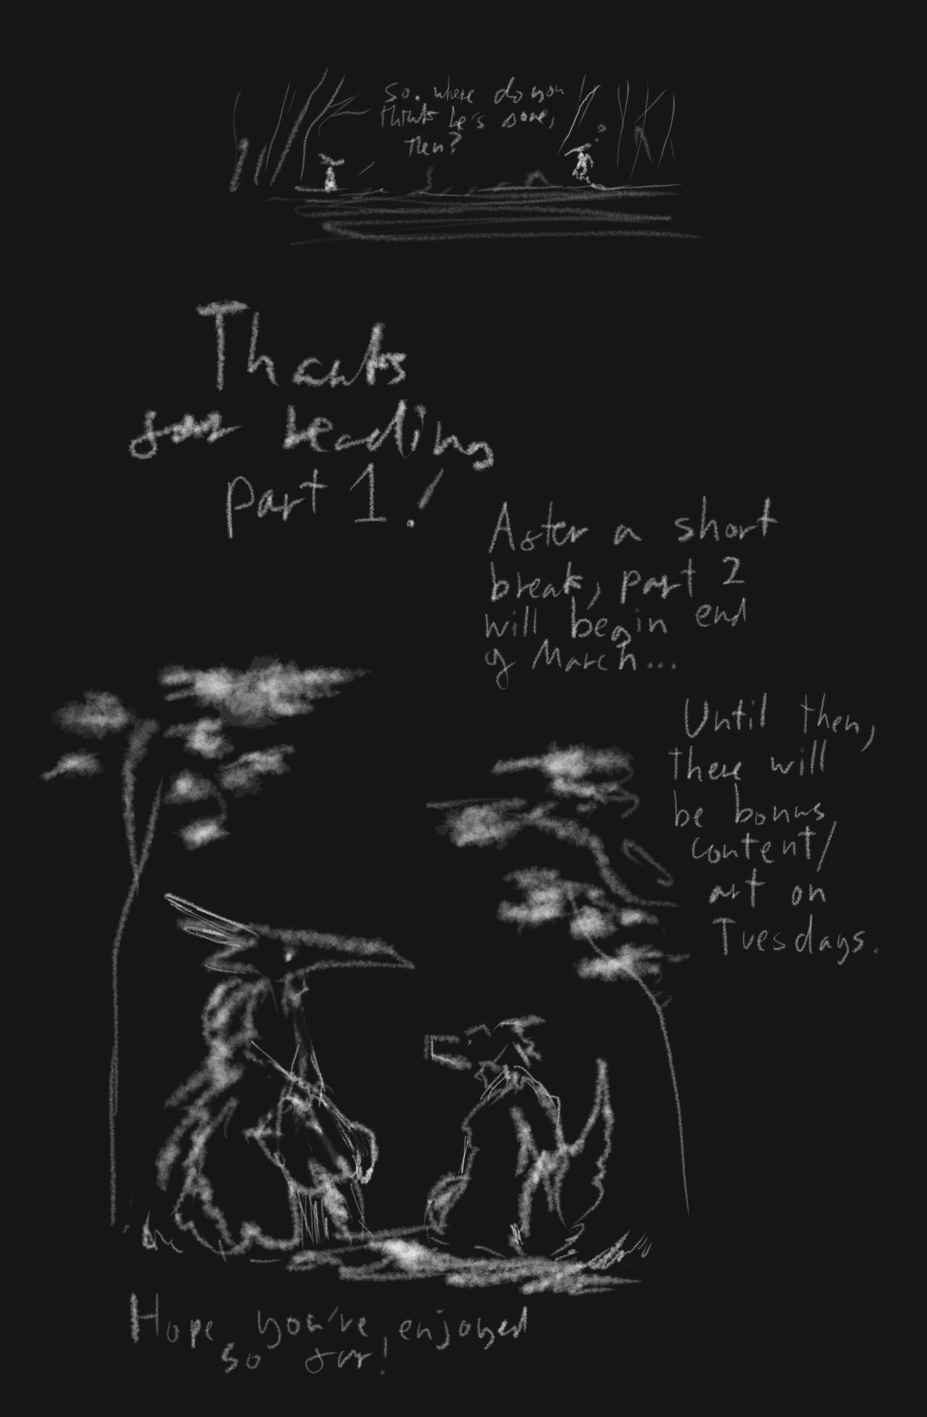 So. where do you
think he's gone,
then?
Thanks
for reading
part 1!
After a short
break, part 2
will begin end
of March...
Until then,
there will
be bonus
content/
art on
Tuesdays.
Hope you've enjoyed
so far!